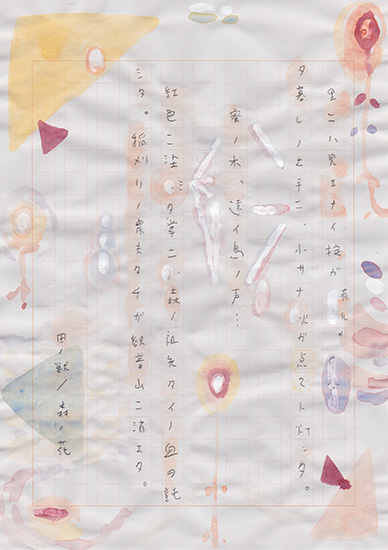 里ニハ見エナイ橋が有ル。
夕暮レノ土手ニ、小サナ火が点テト灯ッタ。
密ノ水、遠イ鳥ノ声…
紅色ニ塗ッタ掌ニ、森ノ祖先タイノ血ヲ託
シタ。稲刈リノ農夫タチが観音山ニ消エタ。
田ノ獣ノ森ノ花